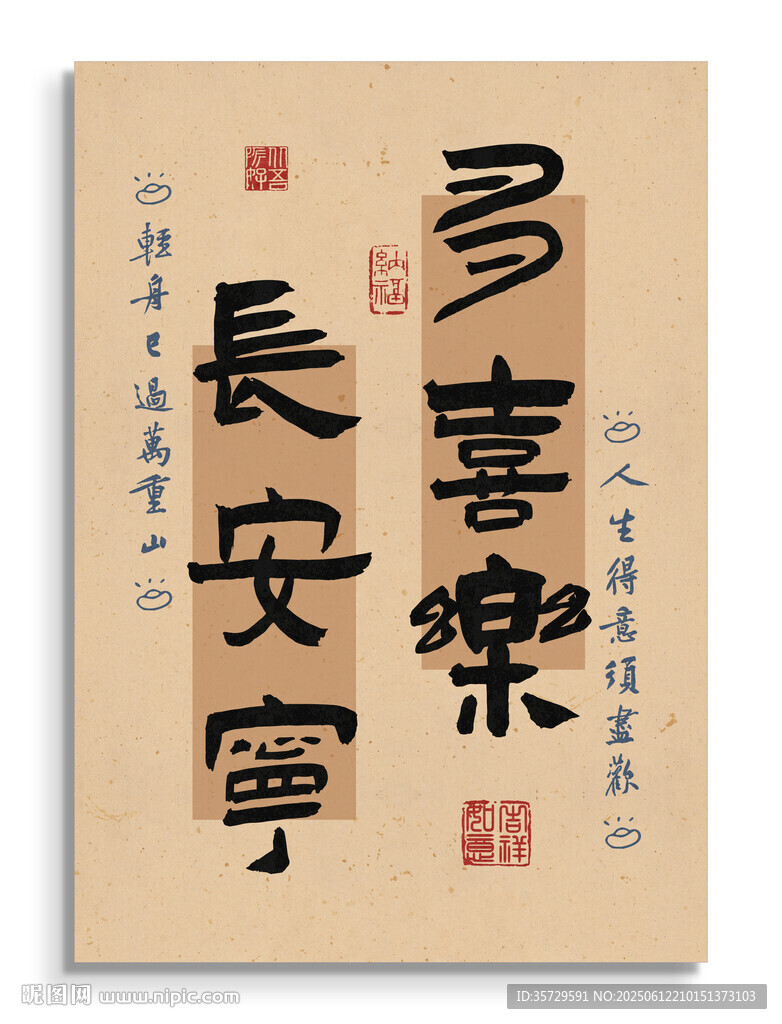 人生得意須盡歡
多喜樂
納福
吉祥如意
長安寧
輕身已過萬重山
昵图网 www.nipic.com
ID:35729591 NO:20250612210151373103